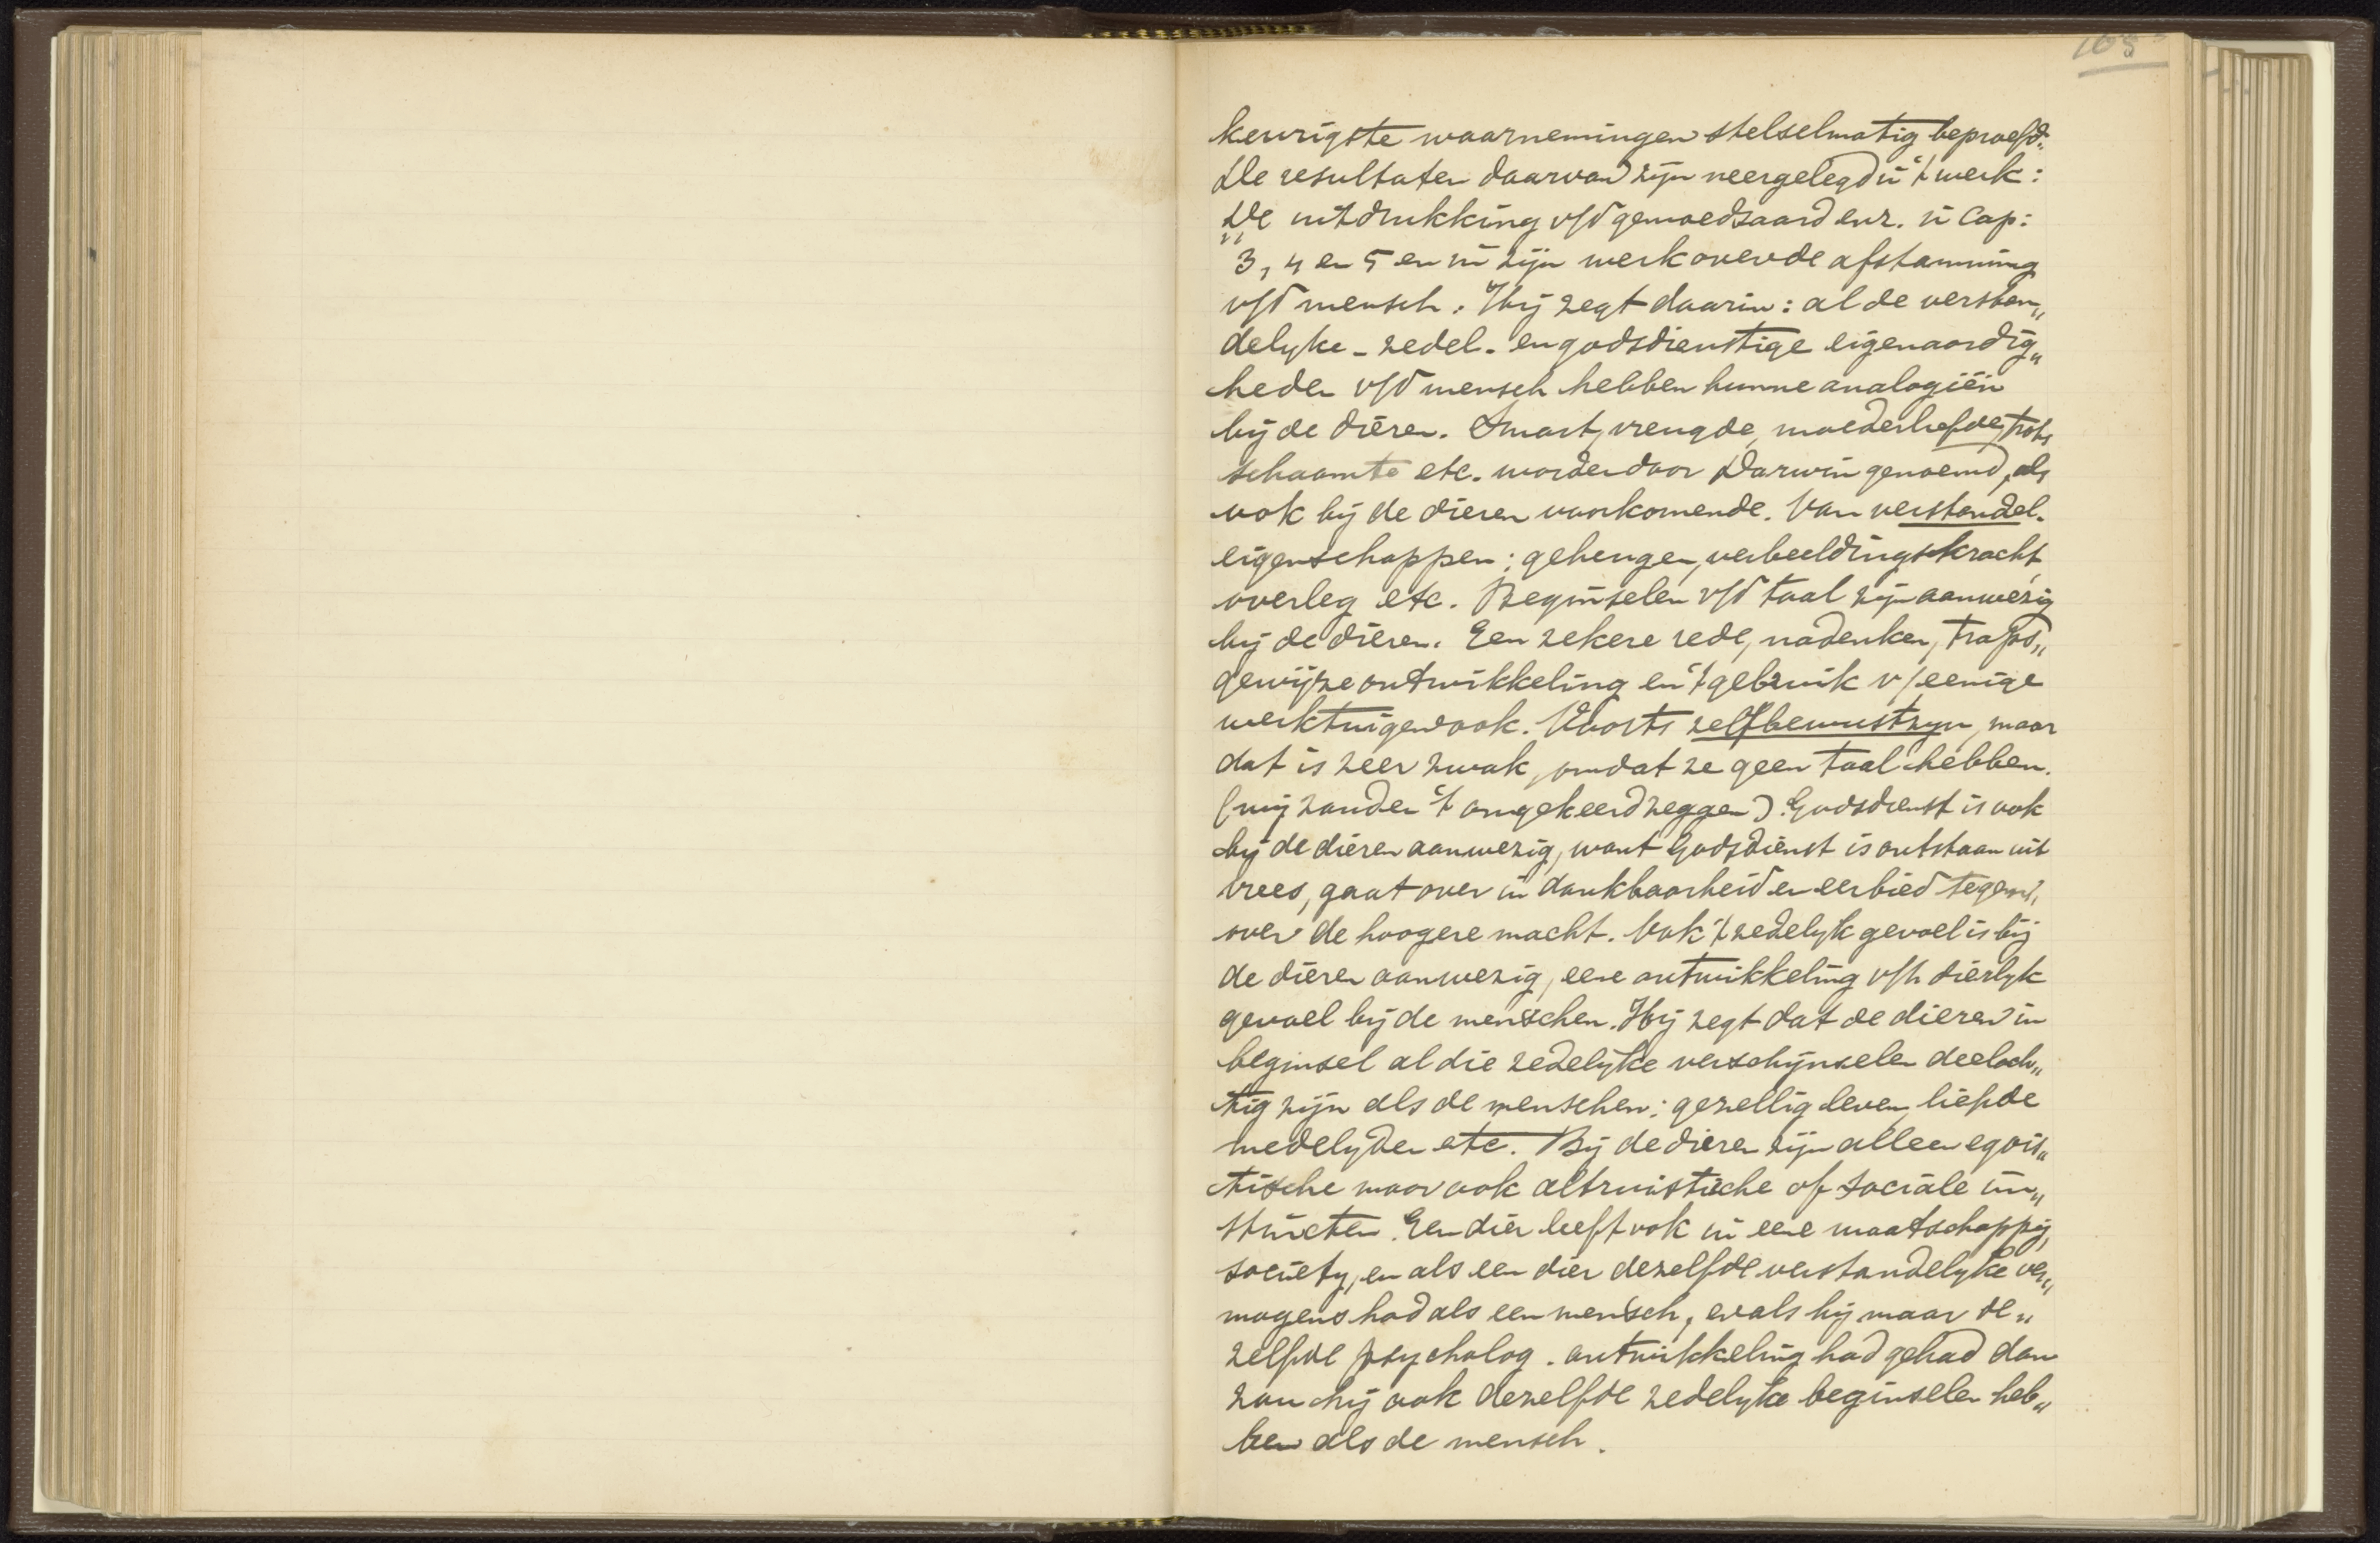 105
keurigste waarnemingen stelselmatig beproefd.
De resultaten daarvan zijn neergelegd in 't werk:
De uitdrukking v/d gemoedsaard enz. in Cap:
3, 4 en 5 en in zijn werk over de afstamming
v/d mensch. Hij zegt daarin: al de verstan„
delyke - zedel. en godsdienstige eigenaardig„
heden v/d mensch hebben hunne analogiën
bij de dieren. Smart, vreugde, moederliefde, trots
schaamte etc. worden door Darwin genoemd, als
ook bij de dieren voorkomende. Van verstandel.
eigenschappen: geheugen, verbeeldingskracht,
overleg etc. Beginselen v/d taal zijn aanwezig
bij de dieren. Een zekere rede, nadenken, traps„
gewijze ontwikkeling en 't gebruik v/eenige
werktuigen ook. Voorts zelfbewustzyn, maar
dat is zeer zwak, omdat ze geen taal hebben.
(wij zouden 't omgekeerd zeggen). Godsdienst is ook
bij de dieren aanwezig, want Godsdienst is ontstaan uit
vrees, gaat over in dankbaarheid en eerbied tegen„
over de hoogere macht. Ook 't zedelyk gevoel is bij
de dieren aanwezig, eene ontwikkeling v/h dierlyk
gevoel bij de menschen. Hij zegt dat de dieren in
beginsel al die zedelyke verschijnselen deelach„
tig zijn als de menschen: gezellig leven, liefde
medelijden etc. Bij de dieren zijn alleen egois„
tische maar ook altruistische of sociale in„
stincten. Een dier leeft ook in eene maatschappij,
society, en als een dier dezelfde verstandelyke ver„
mogens had als een mensch, en als hij maar de„
zelfde psycholog. ontwikkeling had gehad dan
zou hij ook dezelfde zedelyke beginselen heb„
ben als de mensch.